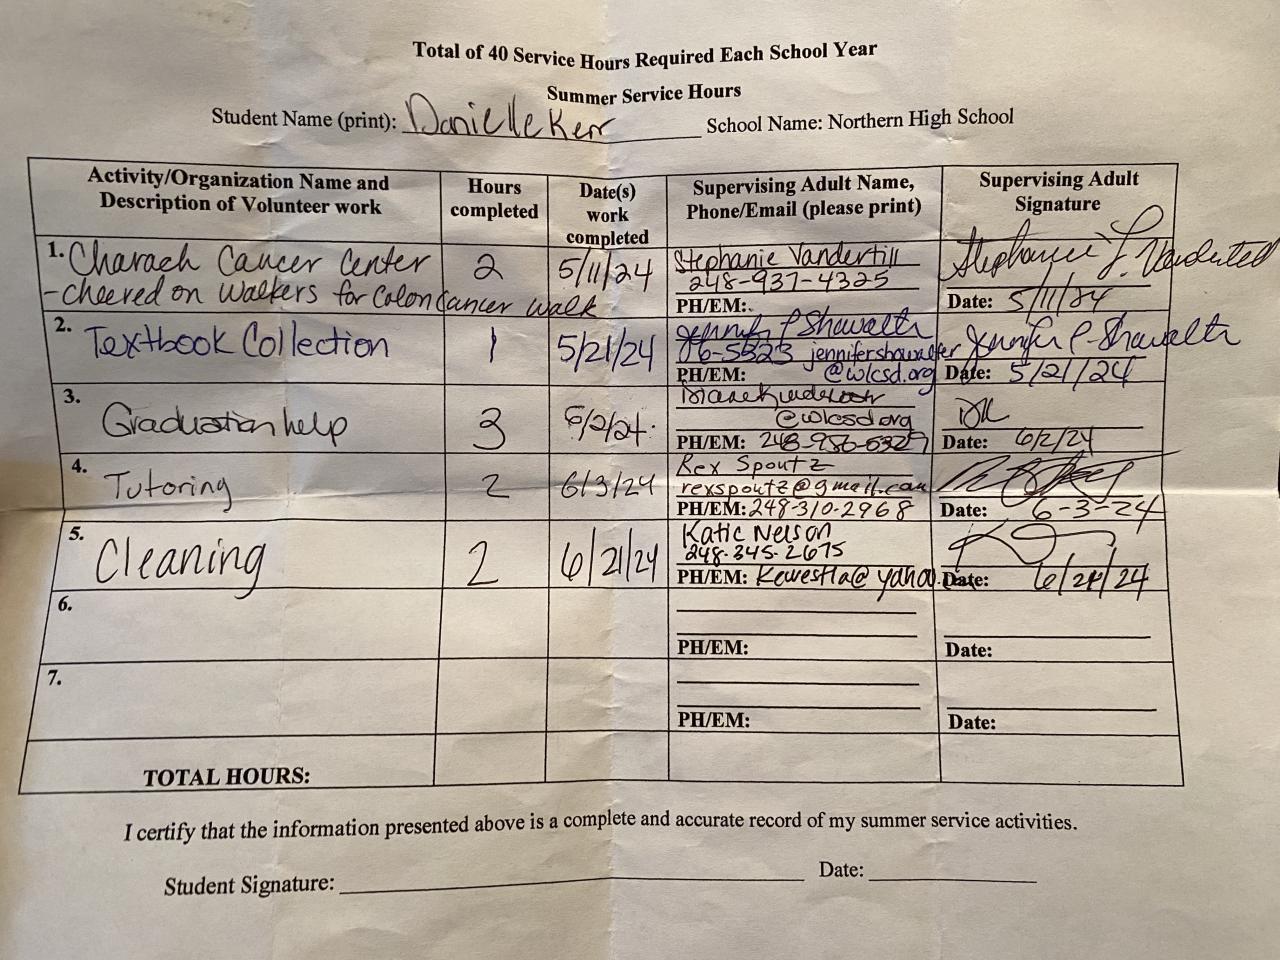 Total of 40 Service Hours Required Each School Year
Summer Service Hours
Student Name (print): Danielle Kerr School Name: Northern High School
Activity/Organization Name and Description of Volunteer work
Hours completed
Date(s) work completed
Supervising Adult Name, Phone/Email (please print)
Supervising Adult Signature
1. Charach Cancer Center
-cheered on walkers for Colon cancer walk
2
5/11/24
Stephanie Vandertill
248-937-4325
PH/EM:
Stephanie J. Vandertill
Date: 5/11/24
2. Textbook Collection
1
5/21/24
Jennifer P Showalter
76-5323 jennifershowalter
PH/EM: @wlcsd.org
Jennifer P Showalter
Date: 5/21/24
3. Graduation help
3
6/2/24
@wlcsd.org
PH/EM: 248-956-5327
DK
Date: 6/2/24
4. Tutoring
2
6/3/24
Rex Spoutz
rexspoutz@gmail.com
PH/EM: 248-310-2968
Date: 6-3-24
5. Cleaning
2
6/21/24
Katie Nelson
248-345-2675
PH/EM: Kewestla@yahoo.
Date: 6/21/24
6.
PH/EM:
Date:
7.
PH/EM:
Date:
TOTAL HOURS:
I certify that the information presented above is a complete and accurate record of my summer service activities.
Student Signature: Date: